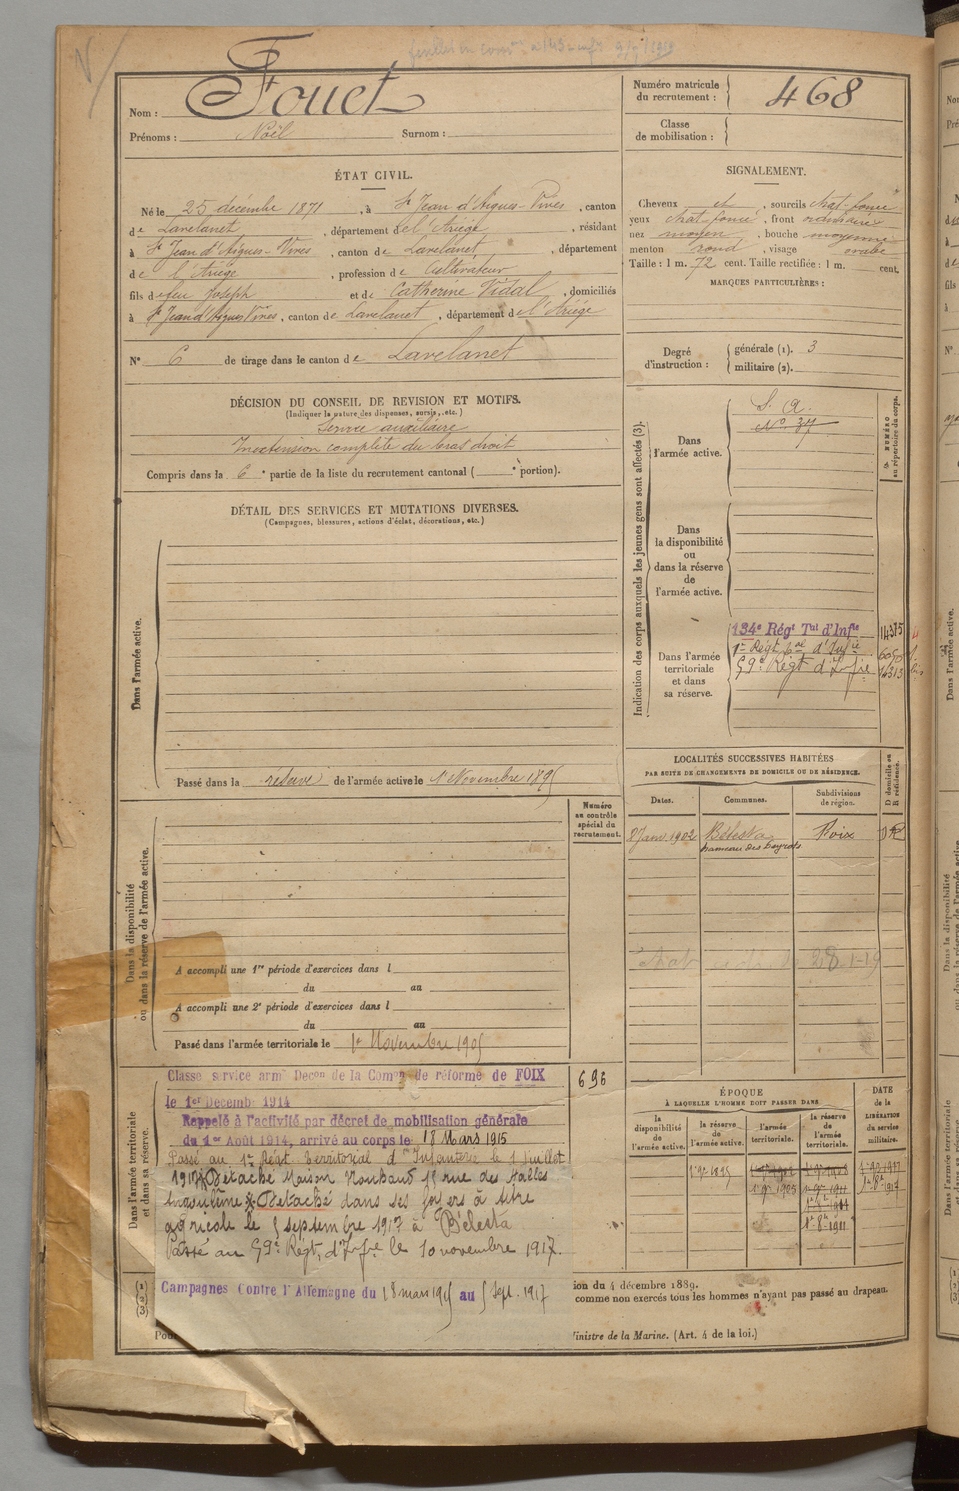 feuilles en
Nom : Fouet
Prénoms : Noël Surnom :
Numéro matricule du recrutement : 468
Classe de mobilisation :
ÉTAT CIVIL.
Né le 25 décembre 1871, à St Jean d'Aigues-Vives, canton
de Lavelanet, département de l'Ariège, résidant
à St Jean d'Aigues-Vives, canton de Lavelanet, département
de l'Ariège, profession de Cultivateur
fils de feu Joseph et de Catherine Vidal, domiciliés
à St Jean d'Aigues Vives, canton de Lavelanet, département de l'Ariège
N° 6 de tirage dans le canton de Lavelanet
SIGNALEMENT.
Cheveux et, sourcils chat-foncé
yeux chat-foncé, front ordinaire
nez moyen, bouche moyenne
menton rond, visage ovale
Taille : 1 m. 72 cent. Taille rectifiée : 1 m. cent.
MARQUES PARTICULIÈRES :
Degré d'instruction :
générale (1). 3
militaire (2).
DÉCISION DU CONSEIL DE REVISION ET MOTIFS.
(Indiquer la nature des dispenses, sursis, etc.)
Service auxiliaire
Inextension complète du bras droit
Compris dans la 6e partie de la liste du recrutement cantonal ( e portion).
DÉTAIL DES SERVICES ET MUTATIONS DIVERSES.
(Campagnes, blessures, actions d'éclat, décorations, etc.)
Dans l'armée active.
Passé dans la réserve de l'armée active le 1 Novembre 1895
Indication des corps auxquels les jeunes gens sont affectés (3).
NUMÉRO au répertoire du corps.
Dans l'armée active.
S. A.
N° 37
Dans la disponibilité ou dans la réserve de l'armée active.
Dans l'armée territoriale et dans sa réserve.
134e Régt Tal d'Infie 14375
1er Régt tal d'Infie
59e Régt d'Infie 14313
LOCALITÉS SUCCESSIVES HABITÉES
PAR SUITE DE CHANGEMENTS DE DOMICILE OU DE RÉSIDENCE.
Dates. Communes. Subdivisions de région. D domicile ou R résidence.
8 Janv. 1902 Bélesta Foix DR
hameau des
28-1-19
Dans la disponibilité ou dans la réserve de l'armée active.
Numéro au contrôle spécial du recrutement.
A accompli une 1re période d'exercices dans l
du au
A accompli une 2e période d'exercices dans l
du au
Passé dans l'armée territoriale le 1er Novembre 1905
Dans l'armée territoriale et dans sa réserve.
696
Classé service armé Décon de la Comon de réforme de FOIX
le 1er Decembre 1914
Rappelé à l'activité par décret de mobilisation générale
du 1er Août 1914, arrivé au corps le 18 Mars 1915
Passé au 1er Régt Territorial d'Infanterie le 1 juillet
1917 Détaché Maison 15 rue des Halles
Détaché dans ses foyers à titre
agricole le 5 septembre 1917 à Bélesta
Passé au 59e Régt d'Infie le 10 novembre 1917.
Campagnes Contre l'Allemagne du 18 mars 1915 au 5 Sept. 1917
ÉPOQUE
A LAQUELLE L'HOMME DOIT PASSER DANS
la disponibilité de l'armée active. la réserve de l'armée active. l'armée territoriale. la réserve de l'armée territoriale. DATE de la LIBÉRATION du service militaire.
1er 9bre 1895 1er 9bre 1917
1er 9bre 1905 1er 9bre 1911 1er 8bre 1917
1er 8bre 1911
(1)
(2)
(3)
ion du 4 décembre 1889.
comme non exercés tous les hommes n'ayant pas passé au drapeau.
Pou
inistre de la Marine. (Art. 4 de la loi.)